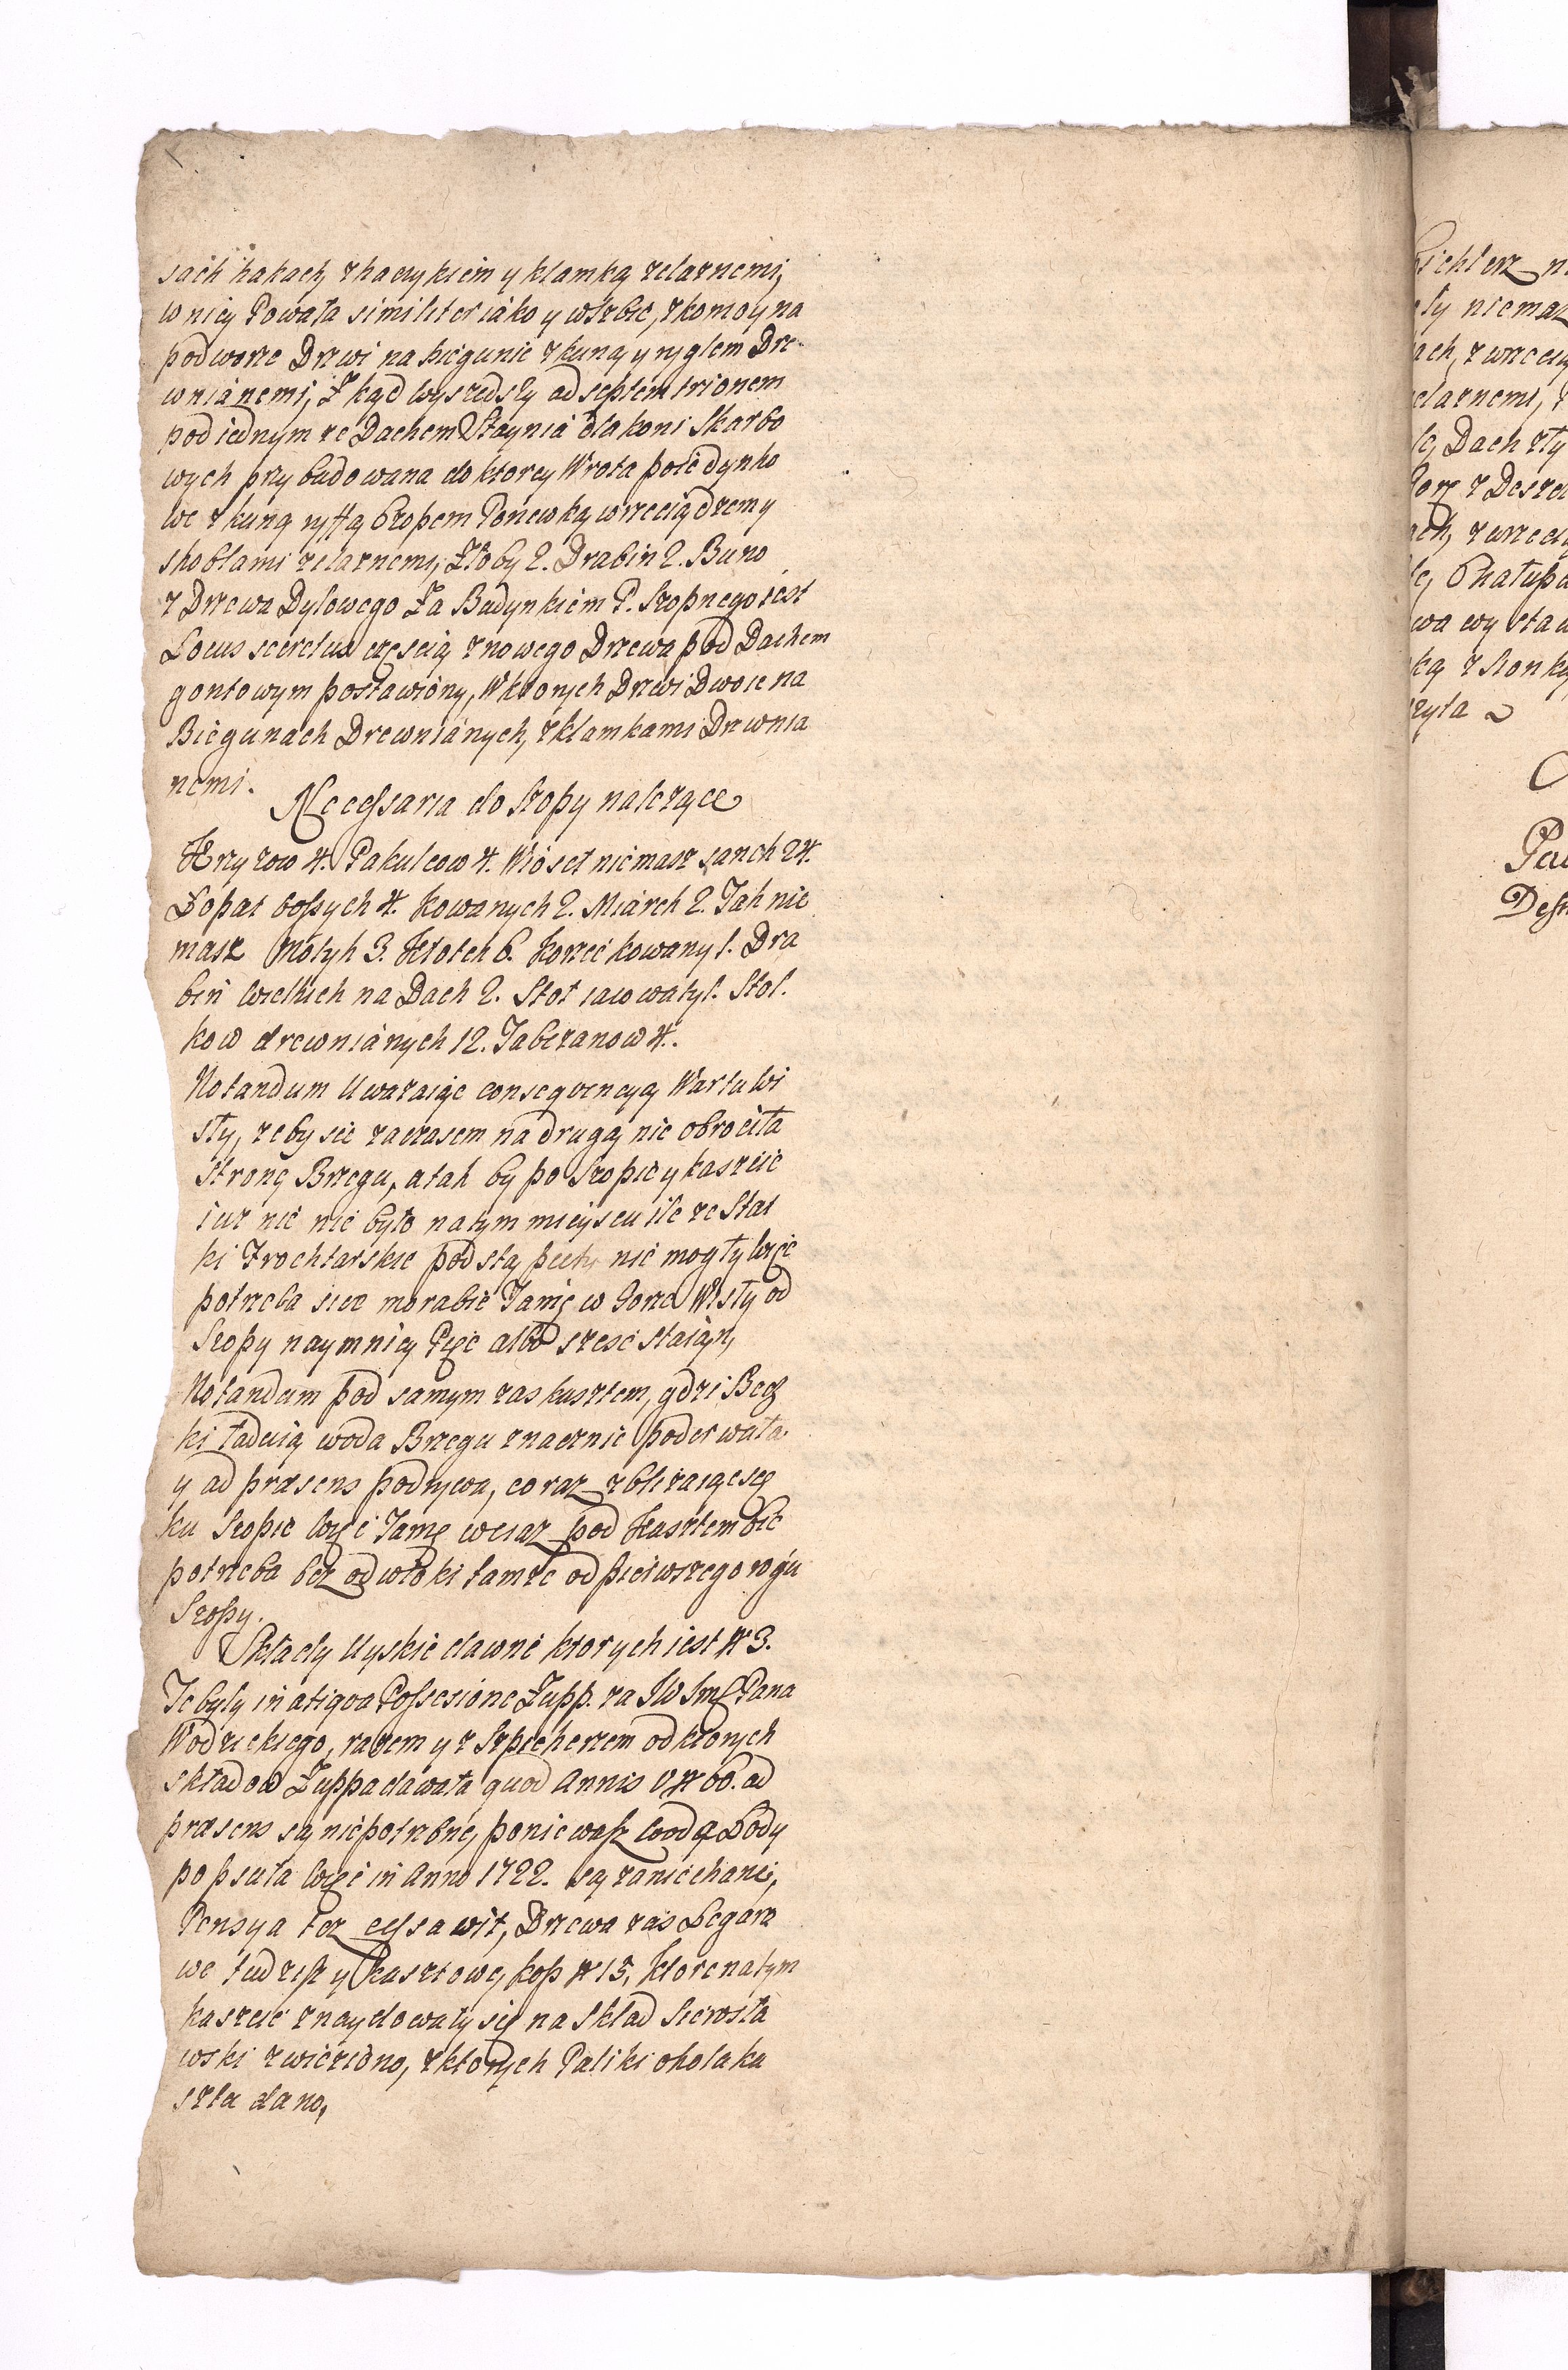 sach hakach, z haczykiem y klamką zelaznemi,
w niey Powała similiter iako y w Izbie, z komory na
podworze Drzwi na biegunie z kuną y ryglem Dre
wnianemi, Z kąd wyszedszy ad septemtrionem
pod iednym ze Dachem Staynia dla koni Skarbo
wych przybudowana do ktorey Wrota poiedynko
we z kuną
skoblami zelaznemi, Złoby 2. Drabin 2. Buno
z Drzewa Dylowego Za Budynkiem P. Szopnego iest
Locus secretus częscią z nowego Drzewa pod Dachem
gontowym postawiony, W ktorych Drzwi Dwoie na
Biegunach Drewnianych, z klamkami Drewnia
nemi.
Necessaria do Szopy nalezące
Krzyzow 4. Pakulcow 4. Wioseł niemasz sanek 24.
Łopat bosych 4. Kowanych 2. Miarek 2. Jak nie
masz Motyk 3. Kłotek 6. Korzec kowany 1. Dra
bin wielkich na Dach 2. Stoł iaworaty 1. Stoł.
kow drewnianych 12. Taberanow 4.
Notandum Uwazaiąc conseqvencyą Wartu Wi
sły, zeby sie zaczasem na drugą nie obrociła
stronę Brzegu, a tak by po Szopie y kaszcie
iuz nic nie było na tym mieyscu ile ze Stat
ki Frochtarskie pod stą nie mogły więc
potrzeba Tamę w Gorze Wisły od
Szopy naymniey Pięc albo szesc staian,
Notandum pod samym zas kasztem, gdzi Becz
ki ładuią woda Brzegu znacznie poderwała
y ad præsens podrywa, coraz zblizaiące się
ku Szopie więc Tamę wciaz pod Kasztem bic
potrzeba bez odwłoki tamze od pierwszego rogu
Szopy.
Składy Uyskie dawne ktorych iest N 3.
Te były in atiqva Possesione Zupp. za JW Jmc Pana
Wodzickiego, razem y z Szpichrzem od ktorych
składow Zuppa dawała quod Annis N 60. ad
præsens są niepotrzbne, poniewasz wodą Lody
popsuła więc in Anno 1722. są zaniechane,
Pensya tez cessawit, Drzewa zas Legaro
we tudziesz y kasztowe, kop N 15, ktore na tym
kaszcie znaydowały się na Skład Sierosła
wski zwieziono, z ktorych Paliki okoła ka
szta dano,